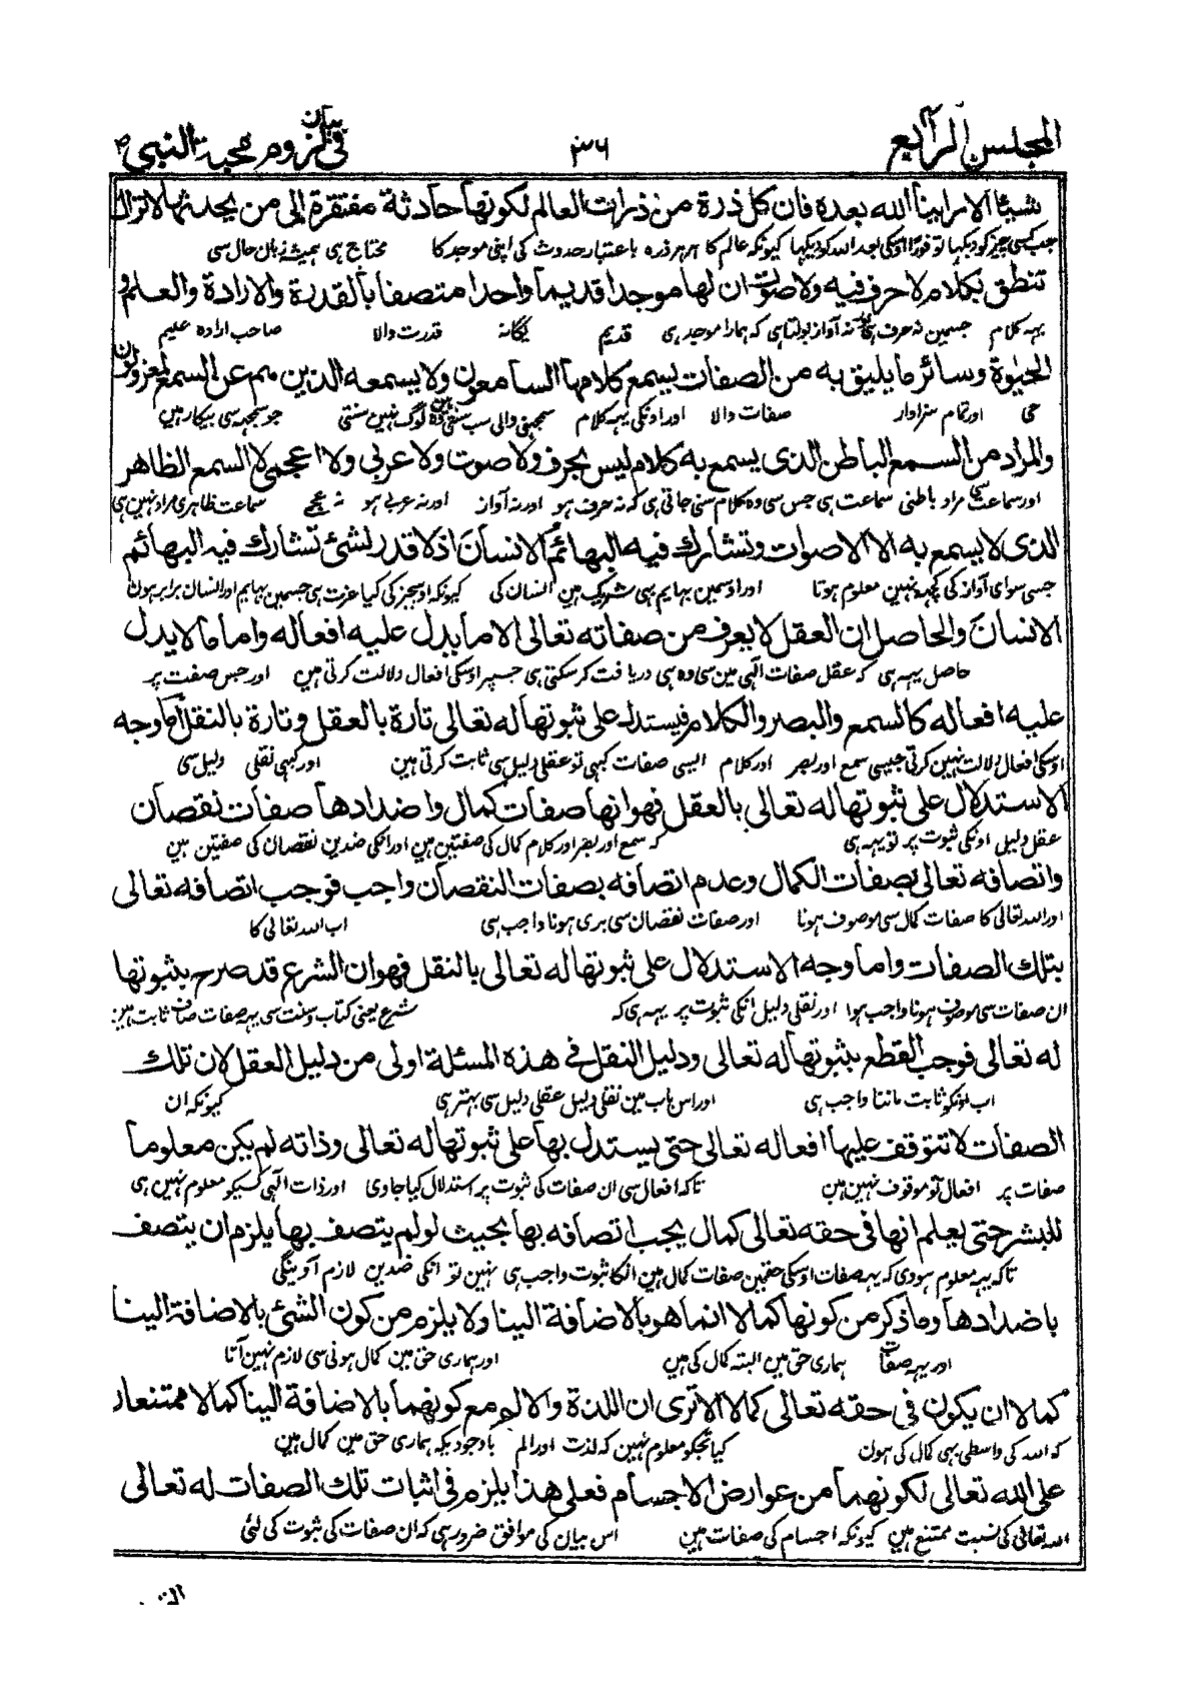 المجلس الرابع
۳۶
بيان
في لزوم محبة النبي ص
شيئا الا رأينا الله بعده فان كل ذرة من ذرات العالم لكونها حادثة مفتقرة الى من يحدثها لا تزال
جب کسی چیز کو دیکہا تو فورًا اوسکی بعد اللہ کو دیکہا کیونکہ عالم کا ہر ہر ذرہ باعتبار حدوث کی اپنی موجد کا محتاج ہی ہمیشہ زبان حال سی
تنطق بكلام لا حرف فيه ولا صوت ان لها موجدا قديما واحدا متصفا بالقدرة والارادة والعلم و
یہہ کلام جسمین نہ حرف ہی نہ آواز بولتا ہی کہ ہمارا موجد ہی قدیم یگانہ قدرت والا صاحب ارادہ علیم
الحيوة وسائر ما يليق به من الصفات يسمع كلامها السامعون ولا يسمعه الذين هم عن السمع لمعزولون
حی اور تمام سزاوار صفات والا اور اونکی یہہ کلام سمجہنی والی سب سنتی ہین وہ لوگ نہین سنتی جو سمجہہ سی بیکار ہین
والمراد من السمع الباطن الذي يسمع به كلام ليس بحرف ولا صوت ولا عربي ولا اعجمي لا السمع الظاهر
اور سماعت سی مراد باطنی سماعت ہی جس سی وہ کلام سنی جاتی ہی کہ نہ حرف ہو اور نہ آواز اور نہ عربی ہو نہ عجمی سماعت ظاہری مراد نہین ہی
الذي لا يسمع به الا الاصوات وتشارك فيه البهائم الانسان اذ لا قدر لشئ تشارك فيه البهائم
جسی سوای آواز کی کچہہ نہین معلوم ہوتا اور اوسمین بہایم بہی شریک ہین انسان کی کیونکہ اوسچیز کی کیا عزت ہی جسمین بہایم اور انسان برابر ہون
الانسان والحاصل ان العقل لا يعرف من صفاته تعالى الا ما يدل عليه افعاله واما ما لا يدل
حاصل یہہ ہی کہ عقل صفات الٰہی مین سی وہ ہی دریافت کر سکتی ہی جسپر اوسکی افعال دلالت کرتی ہین اور جس صفت پر
عليه افعاله كالسمع والبصر والكلام فيستدل على ثبوتها له تعالى تارة بالعقل وتارة بالنقل اما وجه
اوسکی افعال دلالت نہین کرتی جیسی سمع اور بصر اور کلام ایسی صفات کبہی تو عقلی دلیل سی ثابت کرتی ہین اور کبہی نقلی دلیل سی
الاستدلال على ثبوتها له تعالى بالعقل فهو انها صفات كمال واضدادها صفات نقصان
عقلی دلیل اونکی ثبوت پر تو یہہ ہی کہ سمع اور بصر اور کلام کمال کی صفتین ہین اور انکی ضدین نقصان کی صفتین ہین
واتصافه تعالى بصفات الكمال وعدم اتصافه بصفات النقصان واجب فوجب اتصافه تعالى
اور اللہ تعالی کا صفات کمال سی موصوف ہونا اور صفات نقصان سی بری ہونا واجب ہی اب اللہ تعالی کا
بتلك الصفات واما وجه الاستدلال على ثبوتها له تعالى بالنقل فهو ان الشرع قد صرح بثبوتها
ان صفات سی موصوف ہونا واجب ہوا اور نقلی دلیل انکی ثبوت پر یہہ ہی کہ شرع یعنی کتاب و سنت سی یہہ صفات صاف ثابت ہین
له تعالى فوجب القطع بثبوتها له تعالى ودليل النقل في هذه المسئلة اولى من دليل العقل لان تلك
اب اونکو ثابت ماننا واجب ہی اور اس باب مین نقلی دلیل عقلی دلیل سی بہتر ہی کیونکہ ان
الصفات لا تتوقف عليها افعاله تعالى حتى يستدل بها على ثبوتها له تعالى وذاته لم يكن معلوما
صفات پر افعال تو موقوف نہین ہین تاکہ افعال سی ان صفات کی ثبوت پر استدلال کیا جاوی اور ذات الٰہی کسیکو معلوم نہین ہی
للبشر حتى يعلم انها في حقه تعالى كمال يجب اتصافه بها بحيث لو لم يتصف بها يلزم ان يتصف
تاکہ یہہ معلوم ہووی کہ یہہ صفات اوسکی حقمین صفات کمال ہین انکا ثبوت واجب ہی نہین تو انکی ضدین لازم آوینگی
باضدادها وما ذكر من كونها كمالا انما هو بالاضافة الينا ولا يلزم من كون الشئ بالاضافة الينا
اور یہہ صفات ہماری حق مین البتہ کمال کی ہین اور ہماری حق مین کمال ہونی سی لازم نہین آتا
كمالا ان يكون في حقه تعالى كمالا الا ترى ان اللذة والالم مع كونهما بالاضافة الينا كمالا ممتنعان
کہ اللہ کی واسطی بہی کمال کی ہون کیا تجکو معلوم نہین کہ لذت اور الم باوجودیکہ ہماری حق مین کمال ہین
على الله تعالى لكونهما من عوارض الاجسام فعلى هذا يلزم في اثبات تلك الصفات له تعالى
اللہ تعالی کی نسبت ممتنع ہین کیونکہ اجسام کی صفات ہین اس بیان کی موافق ضرور ہی کہ ان صفات کی ثبوت کی لئی